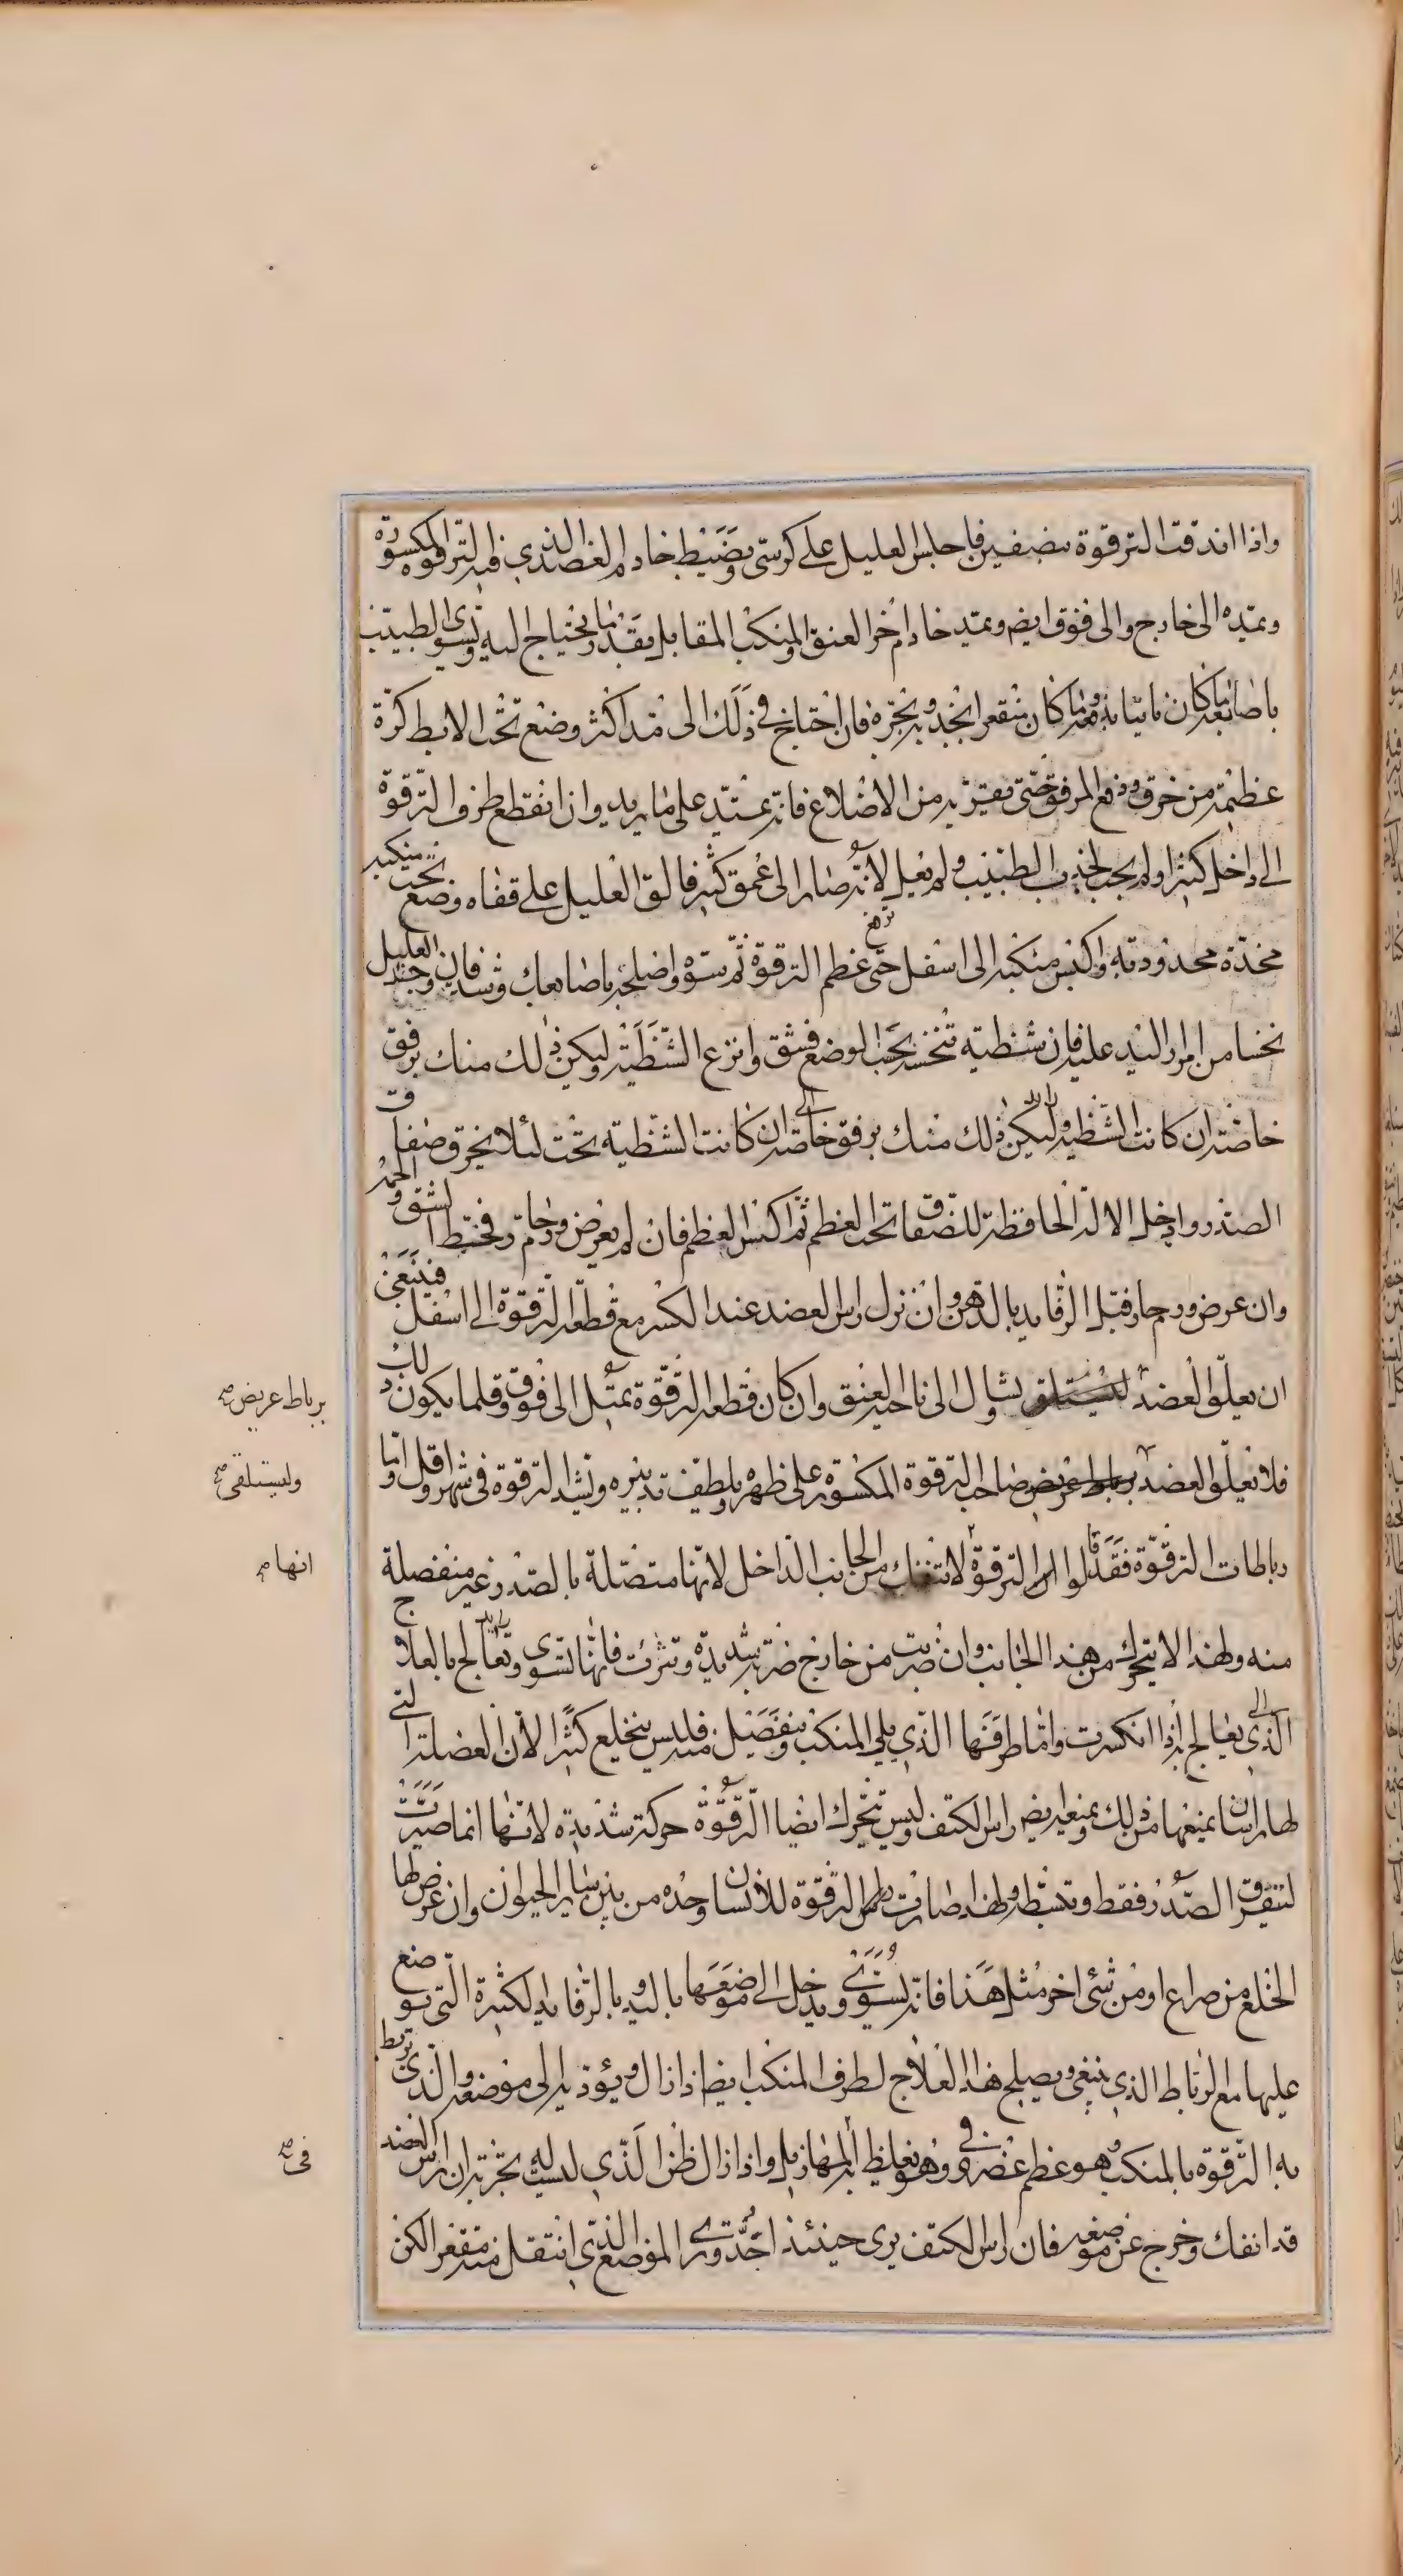 واذا اندقت الترقوة بنصفين فاجلس العليل على كرسى ويضبط خادم العضد الذى فيه الترقوة المكسورة
ويمده الى خارج والى فوق ايضا ويمد خادم اخر العنق والمنكب المقابل بقدر ما يحتاج اليه ويسوى الطبيب
باصابعه ما كان ناتيا يدفعه وما كان منقعرا يجذبه ويجره فان احتاج فى ذلك الى مد اكثر وضع تحت الابط كرة
عظيمة من خرق ودفع المرفق حتى يقربه من الاضلاع فانه يمتد على ما يريد وان انقطع طرف الترقوة
الى داخل كثيرا ولم يجب لجذب الطبيب ولم يعل لانه صار الى عمق كثير فالق العليل على قفاه وضع تحت منكبه
مخدة محدودبة واكبس منكبه الى اسفل حتى ترتفع عظم الترقوة ثم سوه واصلحه باصابعك وشد فان وجد العليل
نخسا من امرار اليد عليه فان شظية تنخسه تحت الموضع فشق وانزع الشظية وليكن ذلك منك برفق
خاصة ان كانت الشظية وليكن ذلك منك برفق خاصة ان كانت الشظية تحت لئلا يخرق صفاق
الصدر وادخل الالة الحافظة للصفاق تحت العظم ثم اكبس العظم فان لم يعرض ورم حار فخيط الشق والحمه
وان عرض ورم حار فبل الرفايد بالدهن وان نزل راس العضد عند الكسر مع قطعة الترقوة الى اسفل فينبغى
ان يعلق العضد ويشال الى ناحية العنق وان كان قطعة الترقوة يميل الى فوق وقلما يكون ذلك
برباط عريض صح
فلا تعلق العضد صاحب الترقوة المكسورة على ظهره ويلطف تدبيره وتشد الترقوة فى شهر واقل واما
وليستلقى صح
رباطات الترقوة فقد قالوا ان الترقوة لا تنفك من الجانب الداخل لانها متصلة بالصدر غير منفصلة
انها صح
منه ولهذا لا يتحرك من هذا الجانب وان ضربت من خارج ضربة شديدة وتبرت فانها تسوى وتعالج بالعلاج
الذى يعالج به اذا انكسرت واما طرفها الذى يلى المنكب وينفصل منه فليس ينخلع كثيرا لان العضلة التى
لها راسان يمنعها من ذلك ويمنعه ايضا راس الكتف وليس تتحرك ايضا الترقوة حركة شديدة لانها انما صيرت
لتفرق الصدر فقط وتبسطه ولهذا صارت الترقوة للانسان وحده من بين ساير الحيوان وان عرض لها
الخلع من صراع او من شئ اخر مثل هذا فانه يسوى ويدخل الى موضعها باليد وبالرفايد الكثيرة التى توضع
عليها مع الرباط الذى ينبغى ويصلح هذا العلاج لطرف المنكب ايضا اذا زال ويؤديه الى موضعه والذى تربط
به الترقوة بالمنكب وهو عظم غضروفى وهو يغلظ المهازيل واذا زال ظن الذى ليست له تجربة ان راس العضد
فى صح
قد انفك وخرج عن موضعه فان راس الكتف يرى حينئذ احد وترى الموضع الذى انتقل منه مقعرا لكن